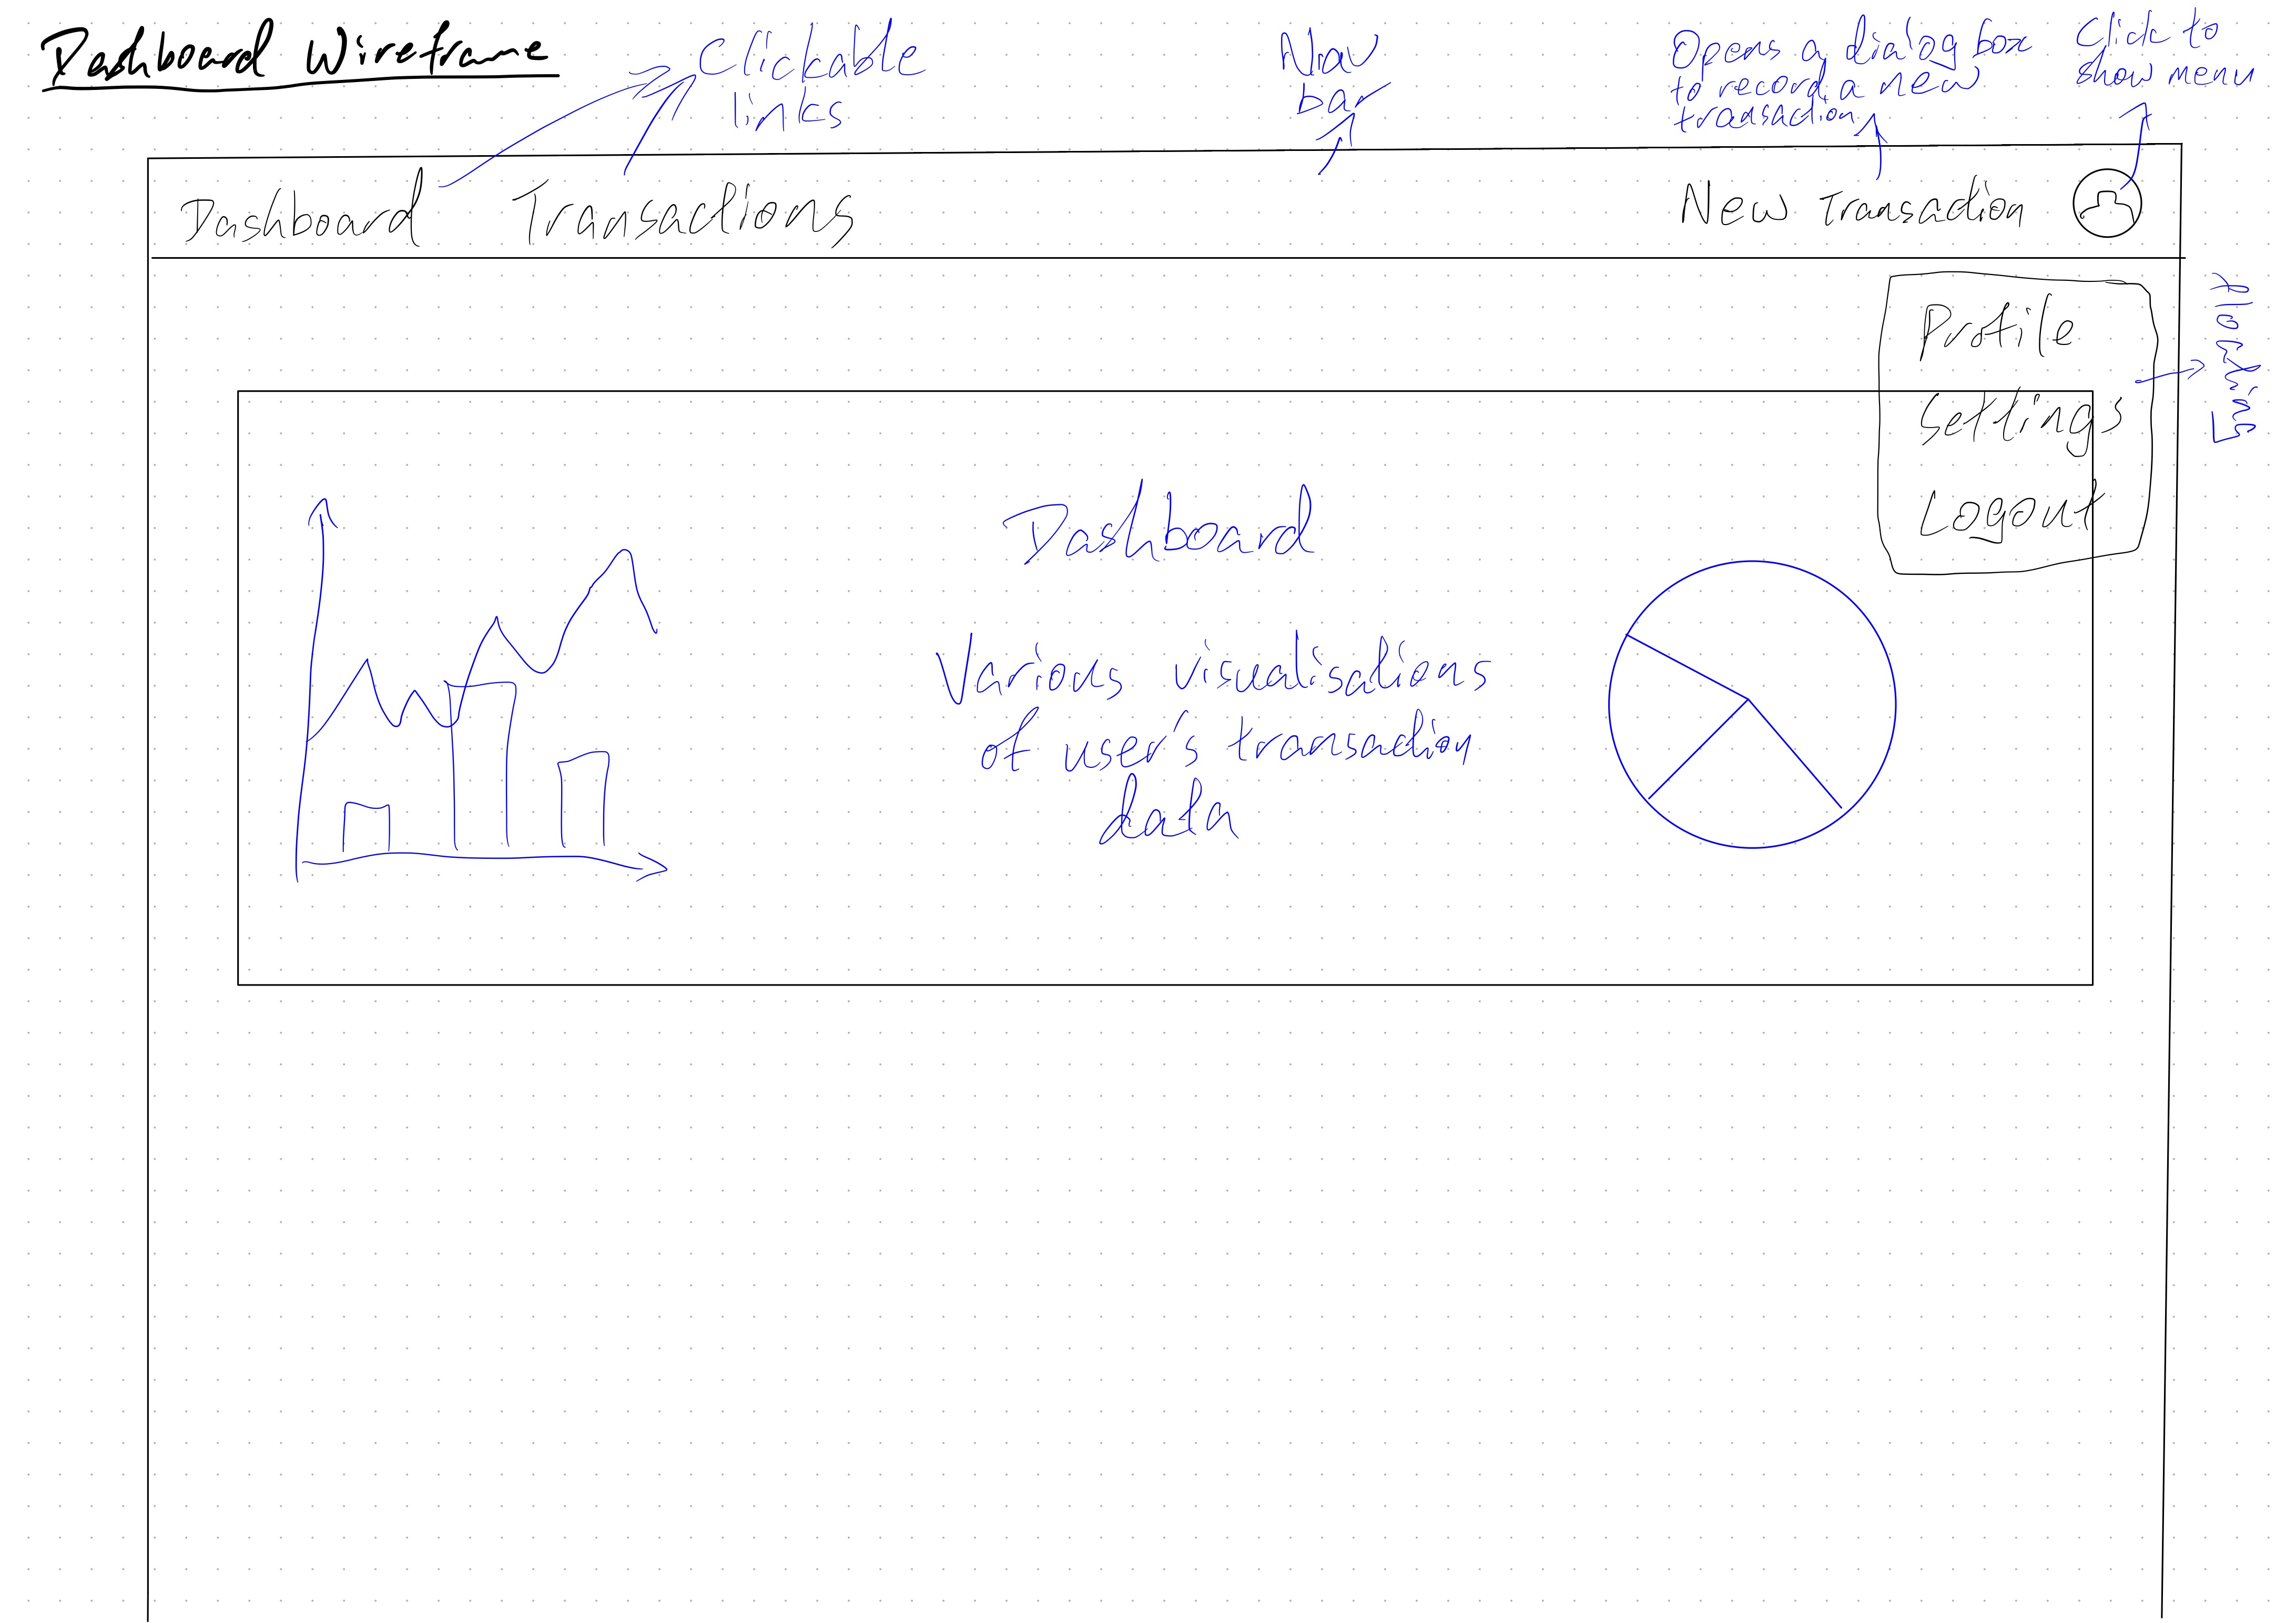 Dashboard Wireframe
Clickable
links
Nav
bar
Opens a dialog box
to record a new
transaction
Click to
show menu
Dashboard
Transactions
New Transaction
Profile
Settings
Logout
floating
Dashboard
Various visualisations
of user's transaction
data